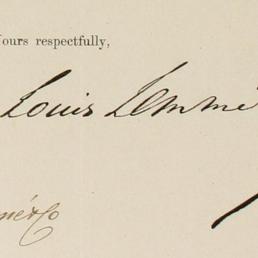 Yours respectfully,
Louis Lemmé